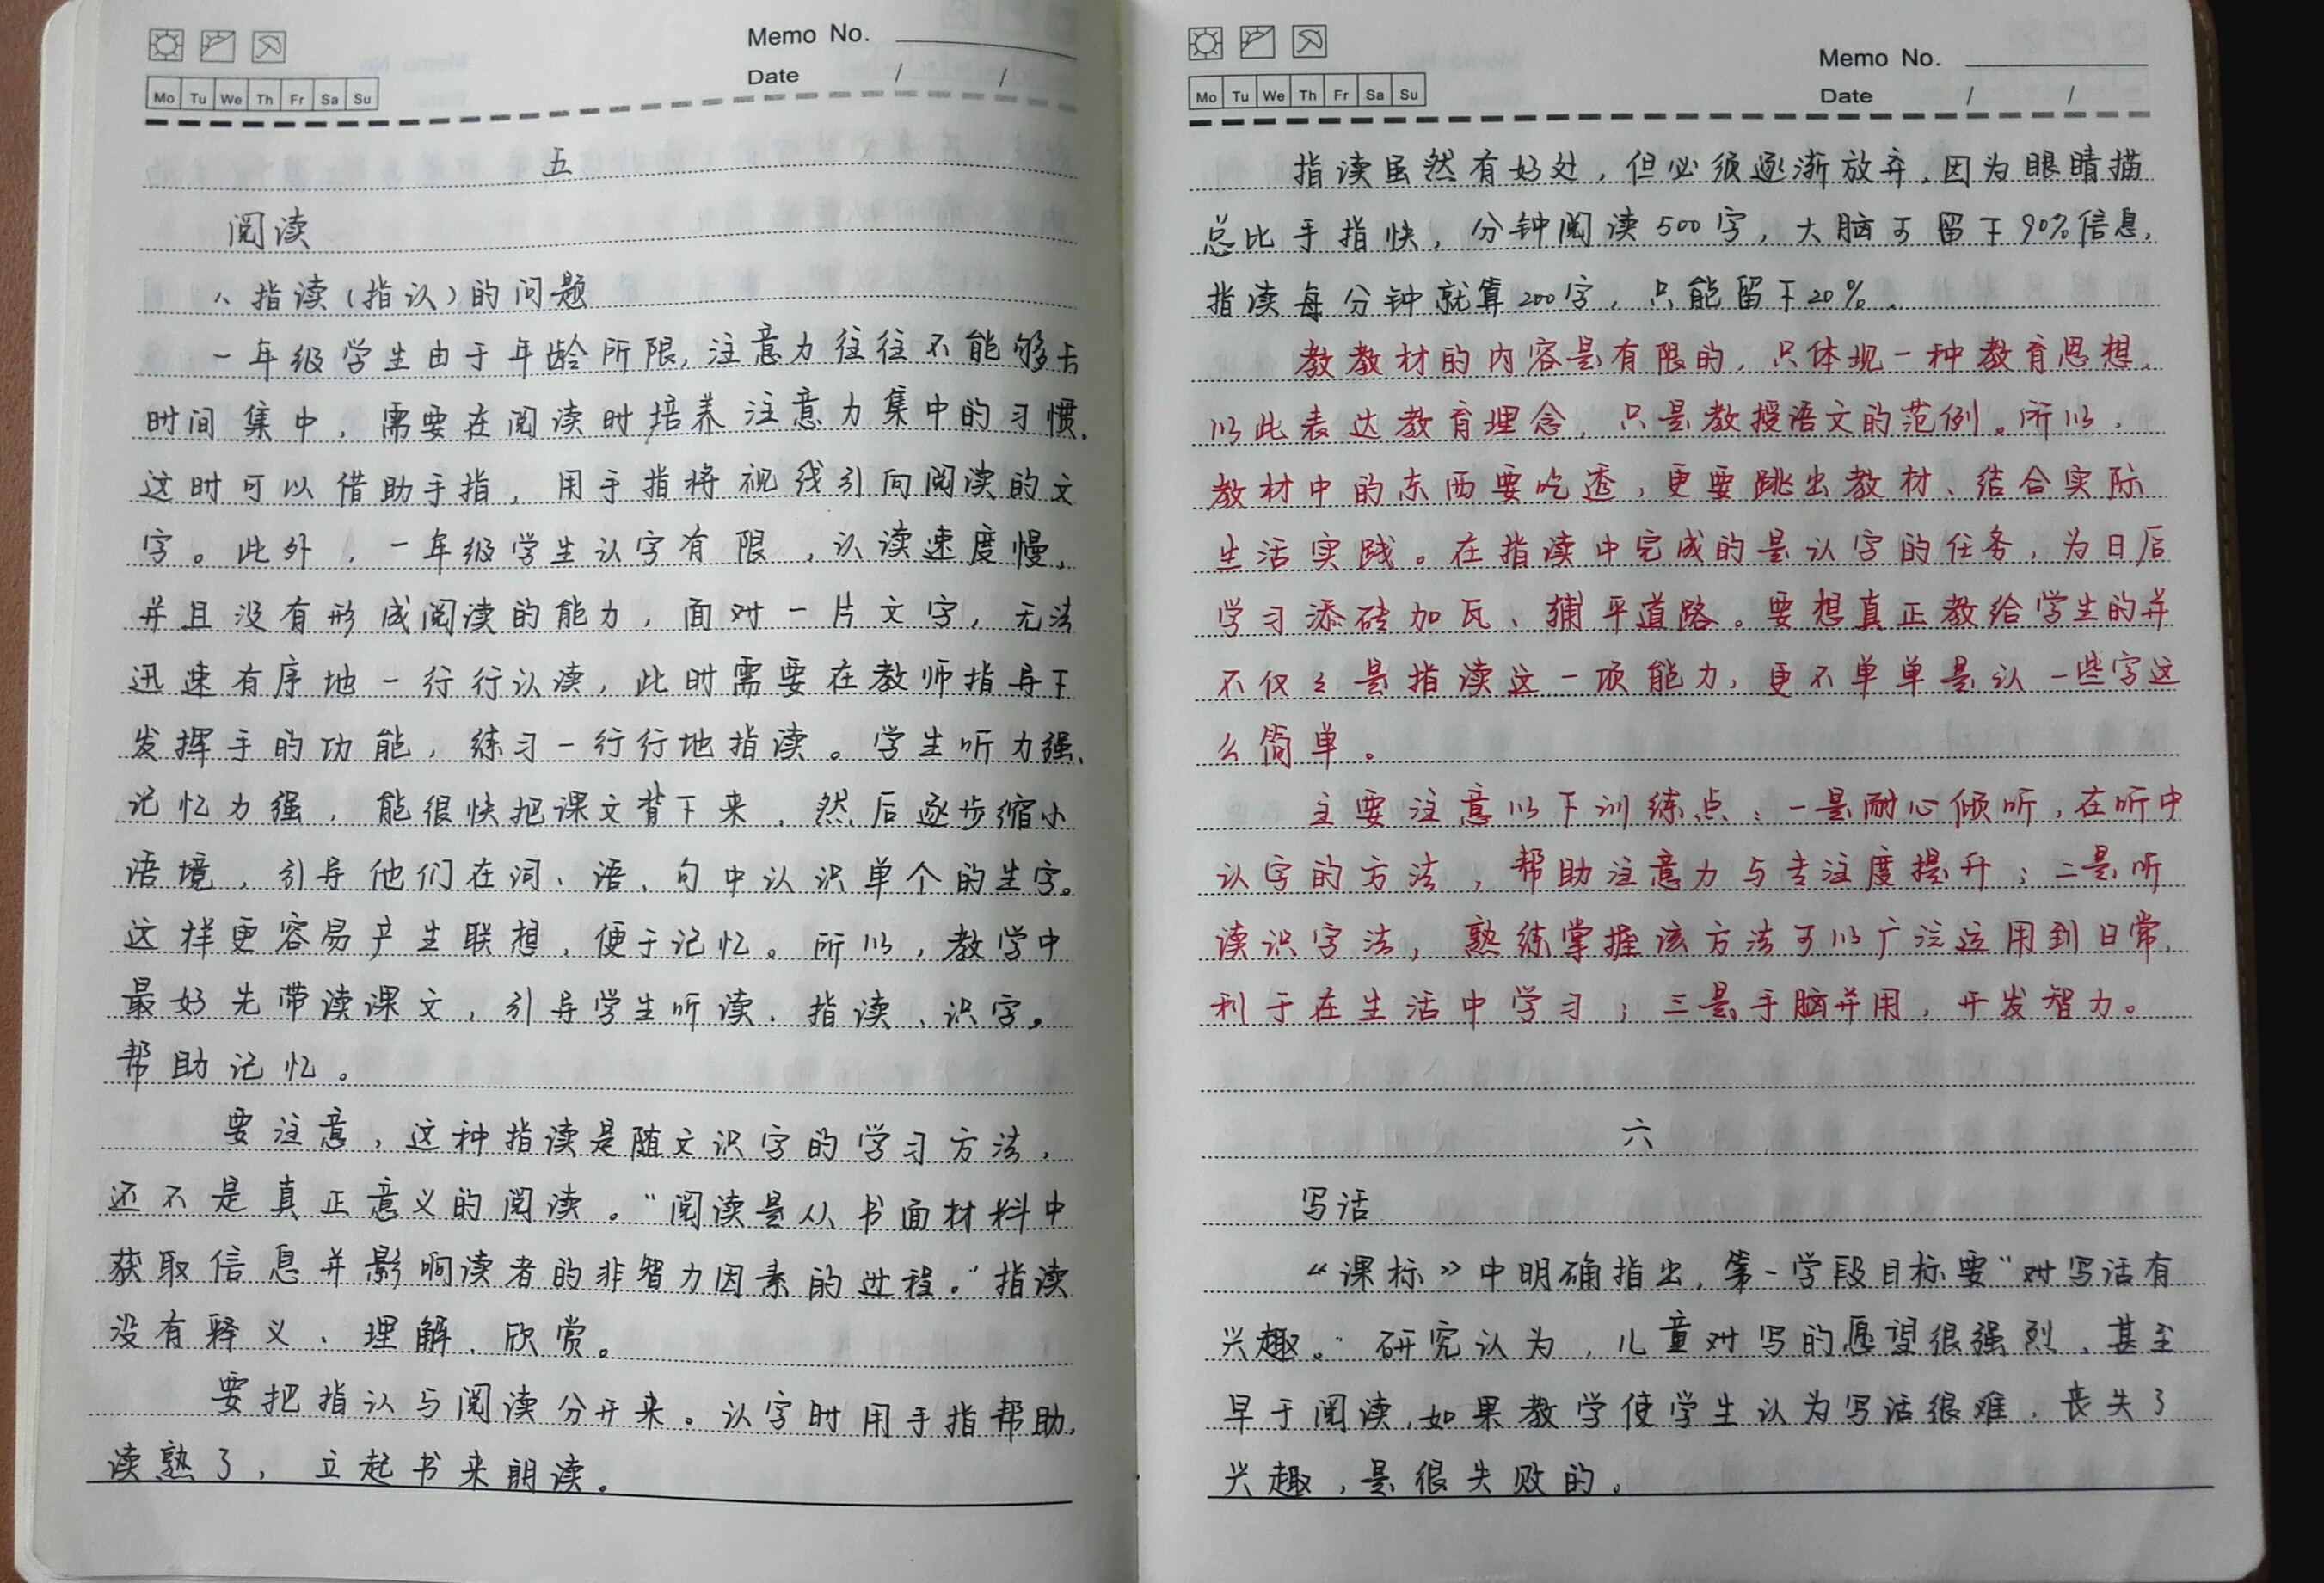 Memo No.
Mo Tu We Th Fr Sa Su
Date / /
五
阅读
1、指读（指认）的问题
一年级学生由于年龄所限，注意力往往不能够长
时间集中，需要在阅读时培养注意力集中的习惯，
这时可以借助手指，用手指将视线引向阅读的文
字。此外，一年级学生认字有限，认读速度慢，
并且没有形成阅读的能力，面对一片文字，无法
迅速有序地一行行认读，此时需要在教师指导下
发挥手的功能，练习一行行地指读。学生听力强、
记忆力强，能很快把课文背下来，然后逐步缩小
语境，引导他们在词、语、句中认识单个的生字。
这样更容易产生联想，便于记忆。所以，教学中
最好先带读课文，引导学生听读、指读、识字，
帮助记忆。
要注意，这种指读是随文识字的学习方法，
还不是真正意义的阅读。“阅读是从书面材料中
获取信息并影响读者的非智力因素的过程。”指读
没有释义、理解、欣赏。
要把指认与阅读分开来。认字时用手指帮助，
读熟了，立起书来朗读。
Memo No.
Mo Tu We Th Fr Sa Su
Date / /
指读虽然有好处，但必须逐渐放弃，因为眼睛描
总比手指快，分钟阅读500字，大脑可留下90%信息，
指读每分钟就算200字，只能留下20%。
教教材的内容是有限的，只体现一种教育思想，
以此表达教育理念，只是教授语文的范例。所以，
教材中的东西要吃透，更要跳出教材、结合实际
生活实践。在指读中完成的是认字的任务，为日后
学习添砖加瓦、铺平道路。要想真正教给学生的并
不仅仅是指读这一项能力，更不单单是认一些字这
么简单。
主要注意以下训练点：一是耐心倾听，在听中
认字的方法，帮助注意力与专注度提升；二是听
读识字法，熟练掌握该方法可以广泛运用到日常，
利于在生活中学习；三是手脑并用，开发智力。
六
写话
“课标》中明确指出，第一学段目标要“对写话有
兴趣。”研究认为，儿童对写的愿望很强烈，甚至
早于阅读，如果教学使学生认为写话很难，丧失了
兴趣，是很失败的。